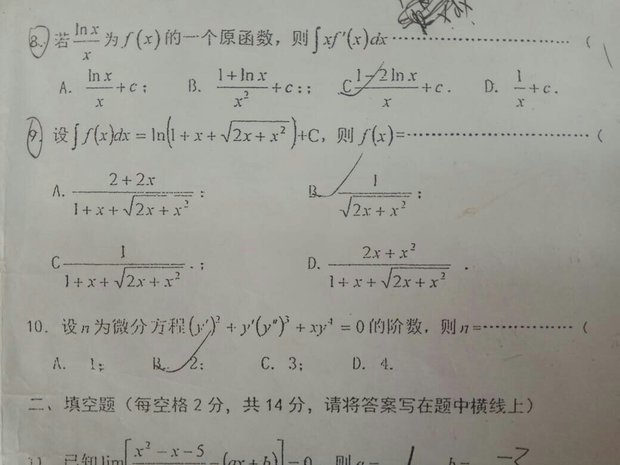 8. 若 ln x / x 为 f(x) 的一个原函数，则 ∫xf′(x)dx ………………（
A. ln x / x + c； B. (1 + ln x) / x² + c；； C (1 − 2 ln x) / x + c． D. 1 / x + c．
9. 设 ∫f(x)dx = ln(1 + x + √(2x + x²)) + C，则 f(x)=………………（
A. (2 + 2x) / (1 + x + √(2x + x²))； B. 1 / √(2x + x²)；
C 1 / (1 + x + √(2x + x²)) .； D. (2x + x²) / (1 + x + √(2x + x²)) ．
10. 设 n 为微分方程 (y′)² + y′(y″)³ + xy⁴ = 0 的阶数，则 n=……………（
A. 1； B. 2； C. 3； D. 4.
二、填空题（每空格 2 分，共 14 分，请将答案写在题中横线上）
11. 已知 lim[(x² − x − 5) / − (ax + b)] = 0 则 a= 1 b= −2